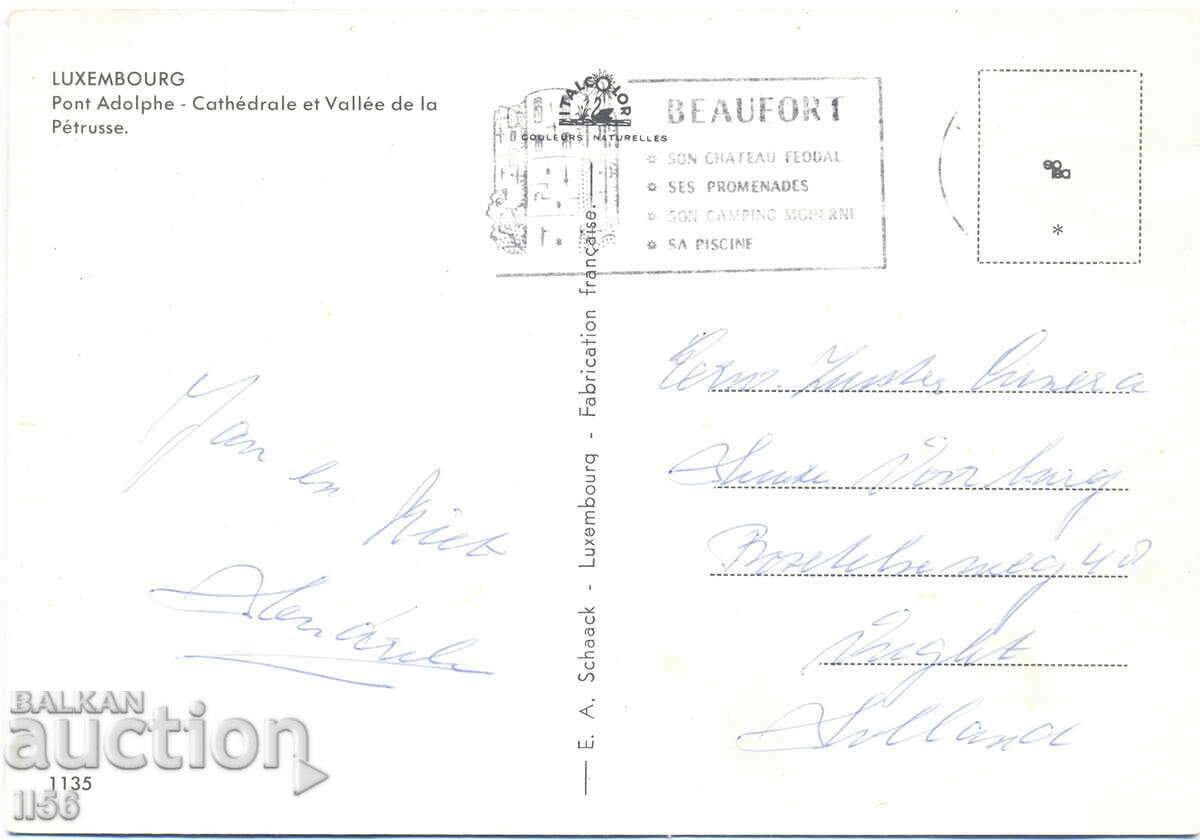 LUXEMBOURG
Pont Adolphe - Cathédrale et Vallée de la
Pétrusse.
ITALCOLOR
COULEURS NATURELLES
BEAUFORT
SON CHATEAU FEODAL
SES PROMENADES
SON CAMPING MODERNE
SA PISCINE
*
E. A. Schaack - Luxembourg - Fabrication française.
Jan en
Miet
Eerw. Zuster
Huize Voorburg
40
Vught
Holland
BALKAN
auction
1135
1156